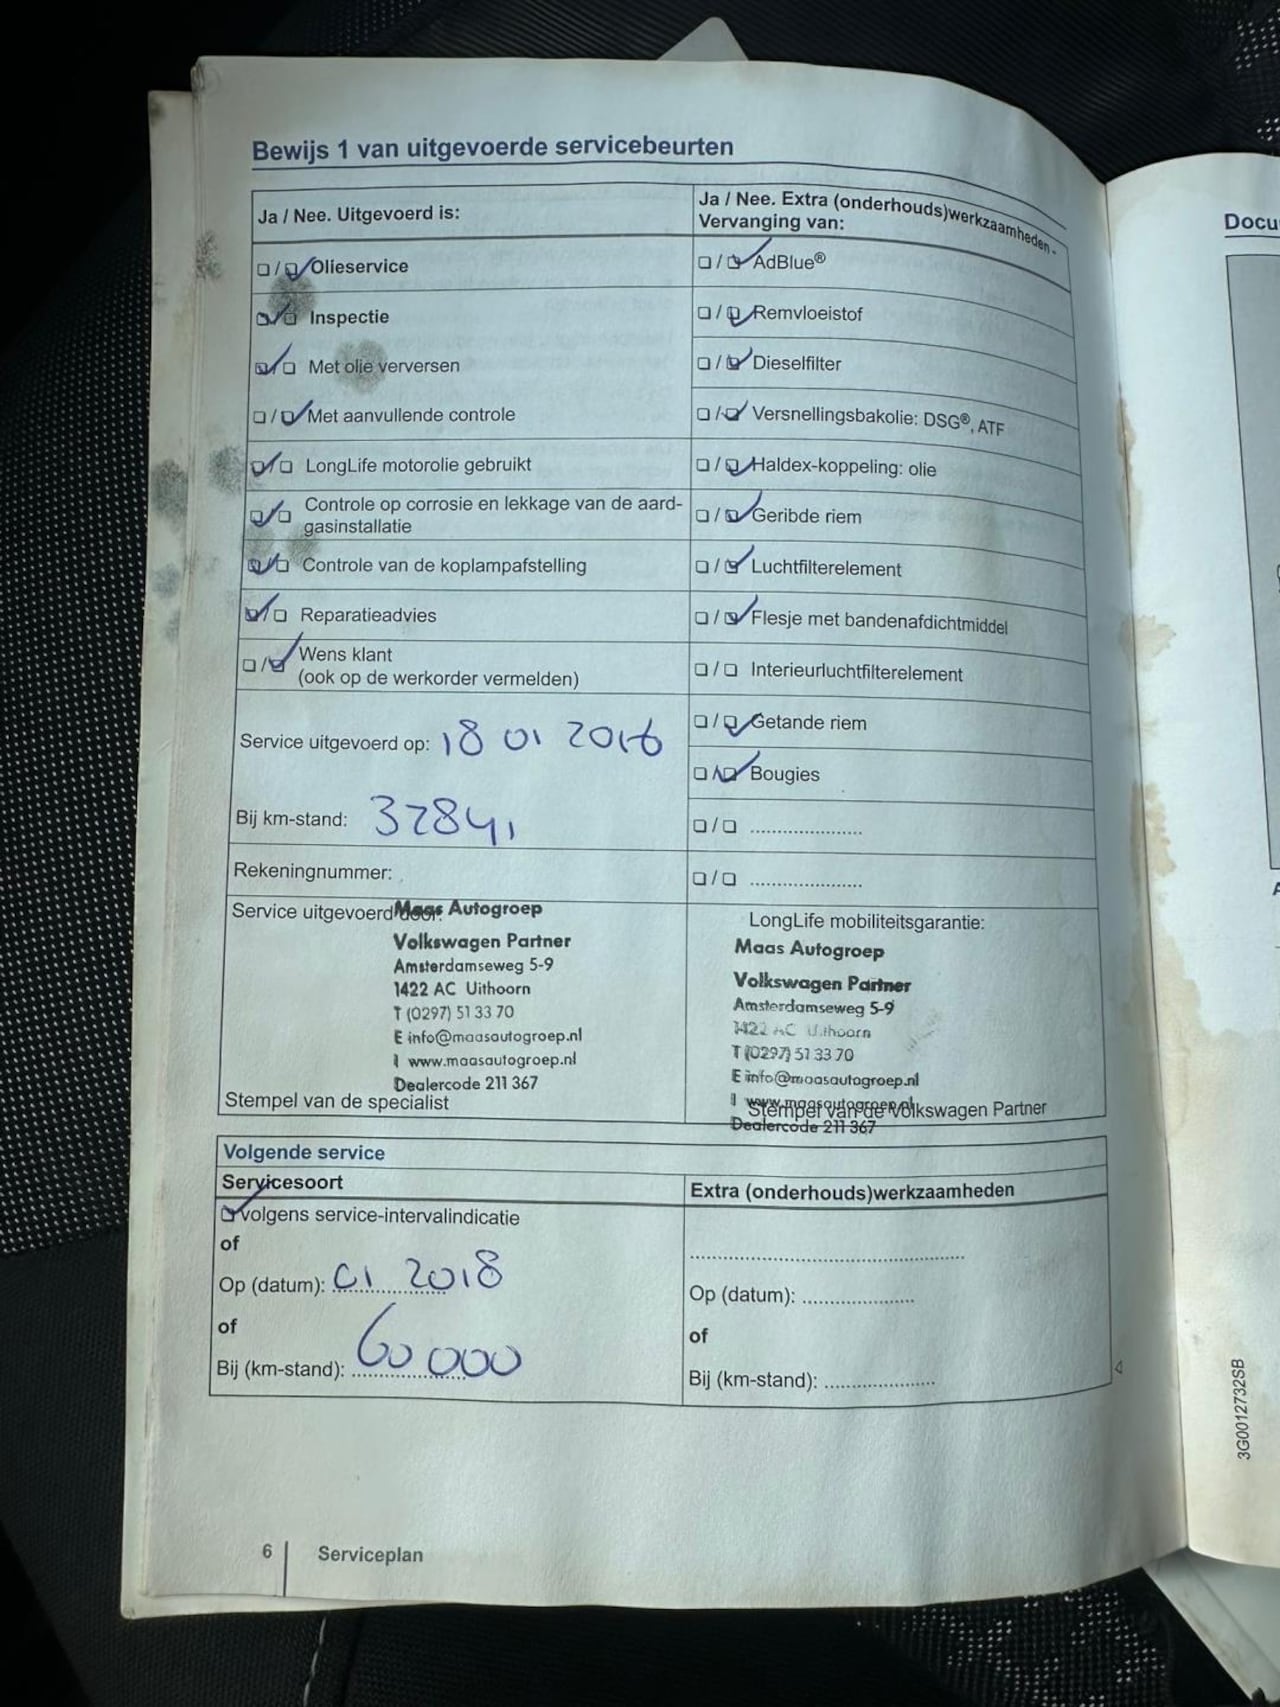 Bewijs 1 van uitgevoerde servicebeurten
Ja / Nee. Uitgevoerd is:
☐ / ☑ Olieservice
☑ / ☐ Inspectie
☑ / ☐ Met olie verversen
☐ / ☑ Met aanvullende controle
☑ / ☐ LongLife motorolie gebruikt
☑ / ☐ Controle op corrosie en lekkage van de aard-
gasinstallatie
☑ / ☐ Controle van de koplampafstelling
☑ / ☐ Reparatieadvies
☐ / ☑ Wens klant
(ook op de werkorder vermelden)
Service uitgevoerd op: 18 01 2016
Bij km-stand: 32841
Rekeningnummer:
Service uitgevoerd door:
Maas Autogroep
Volkswagen Partner
Amsterdamseweg 5-9
1422 AC Uithoorn
T (0297) 51 33 70
E info@maasautogroep.nl
I www.maasautogroep.nl
Dealercode 211 367
Stempel van de specialist
Ja / Nee. Extra (onderhouds)werkzaamheden -
Vervanging van:
☐ / ☑ AdBlue®
☐ / ☑ Remvloeistof
☐ / ☑ Dieselfilter
☐ / ☑ Versnellingsbakolie: DSG®, ATF
☐ / ☑ Haldex-koppeling: olie
☐ / ☑ Geribde riem
☐ / ☑ Luchtfilterelement
☐ / ☑ Flesje met bandenafdichtmiddel
☐ / ☐ Interieurluchtfilterelement
☐ / ☑ Getande riem
☐ / ☑ Bougies
☐ / ☐ .....................
☐ / ☐ .....................
LongLife mobiliteitsgarantie:
Maas Autogroep
Volkswagen Partner
Amsterdamseweg 5-9
1422 AC Uithoorn
T (0297) 51 33 70
E info@maasautogroep.nl
I www.maasautogroep.nl
Stempel van de Volkswagen Partner
Dealercode 211 367
Volgende service
Servicesoort
☑ volgens service-intervalindicatie
of
Op (datum): 01 2018
of
Bij (km-stand): 60 000
Extra (onderhouds)werkzaamheden
.....................
Op (datum): .....................
of
Bij (km-stand): .....................
6 | Serviceplan
Docu
3G0012732SB